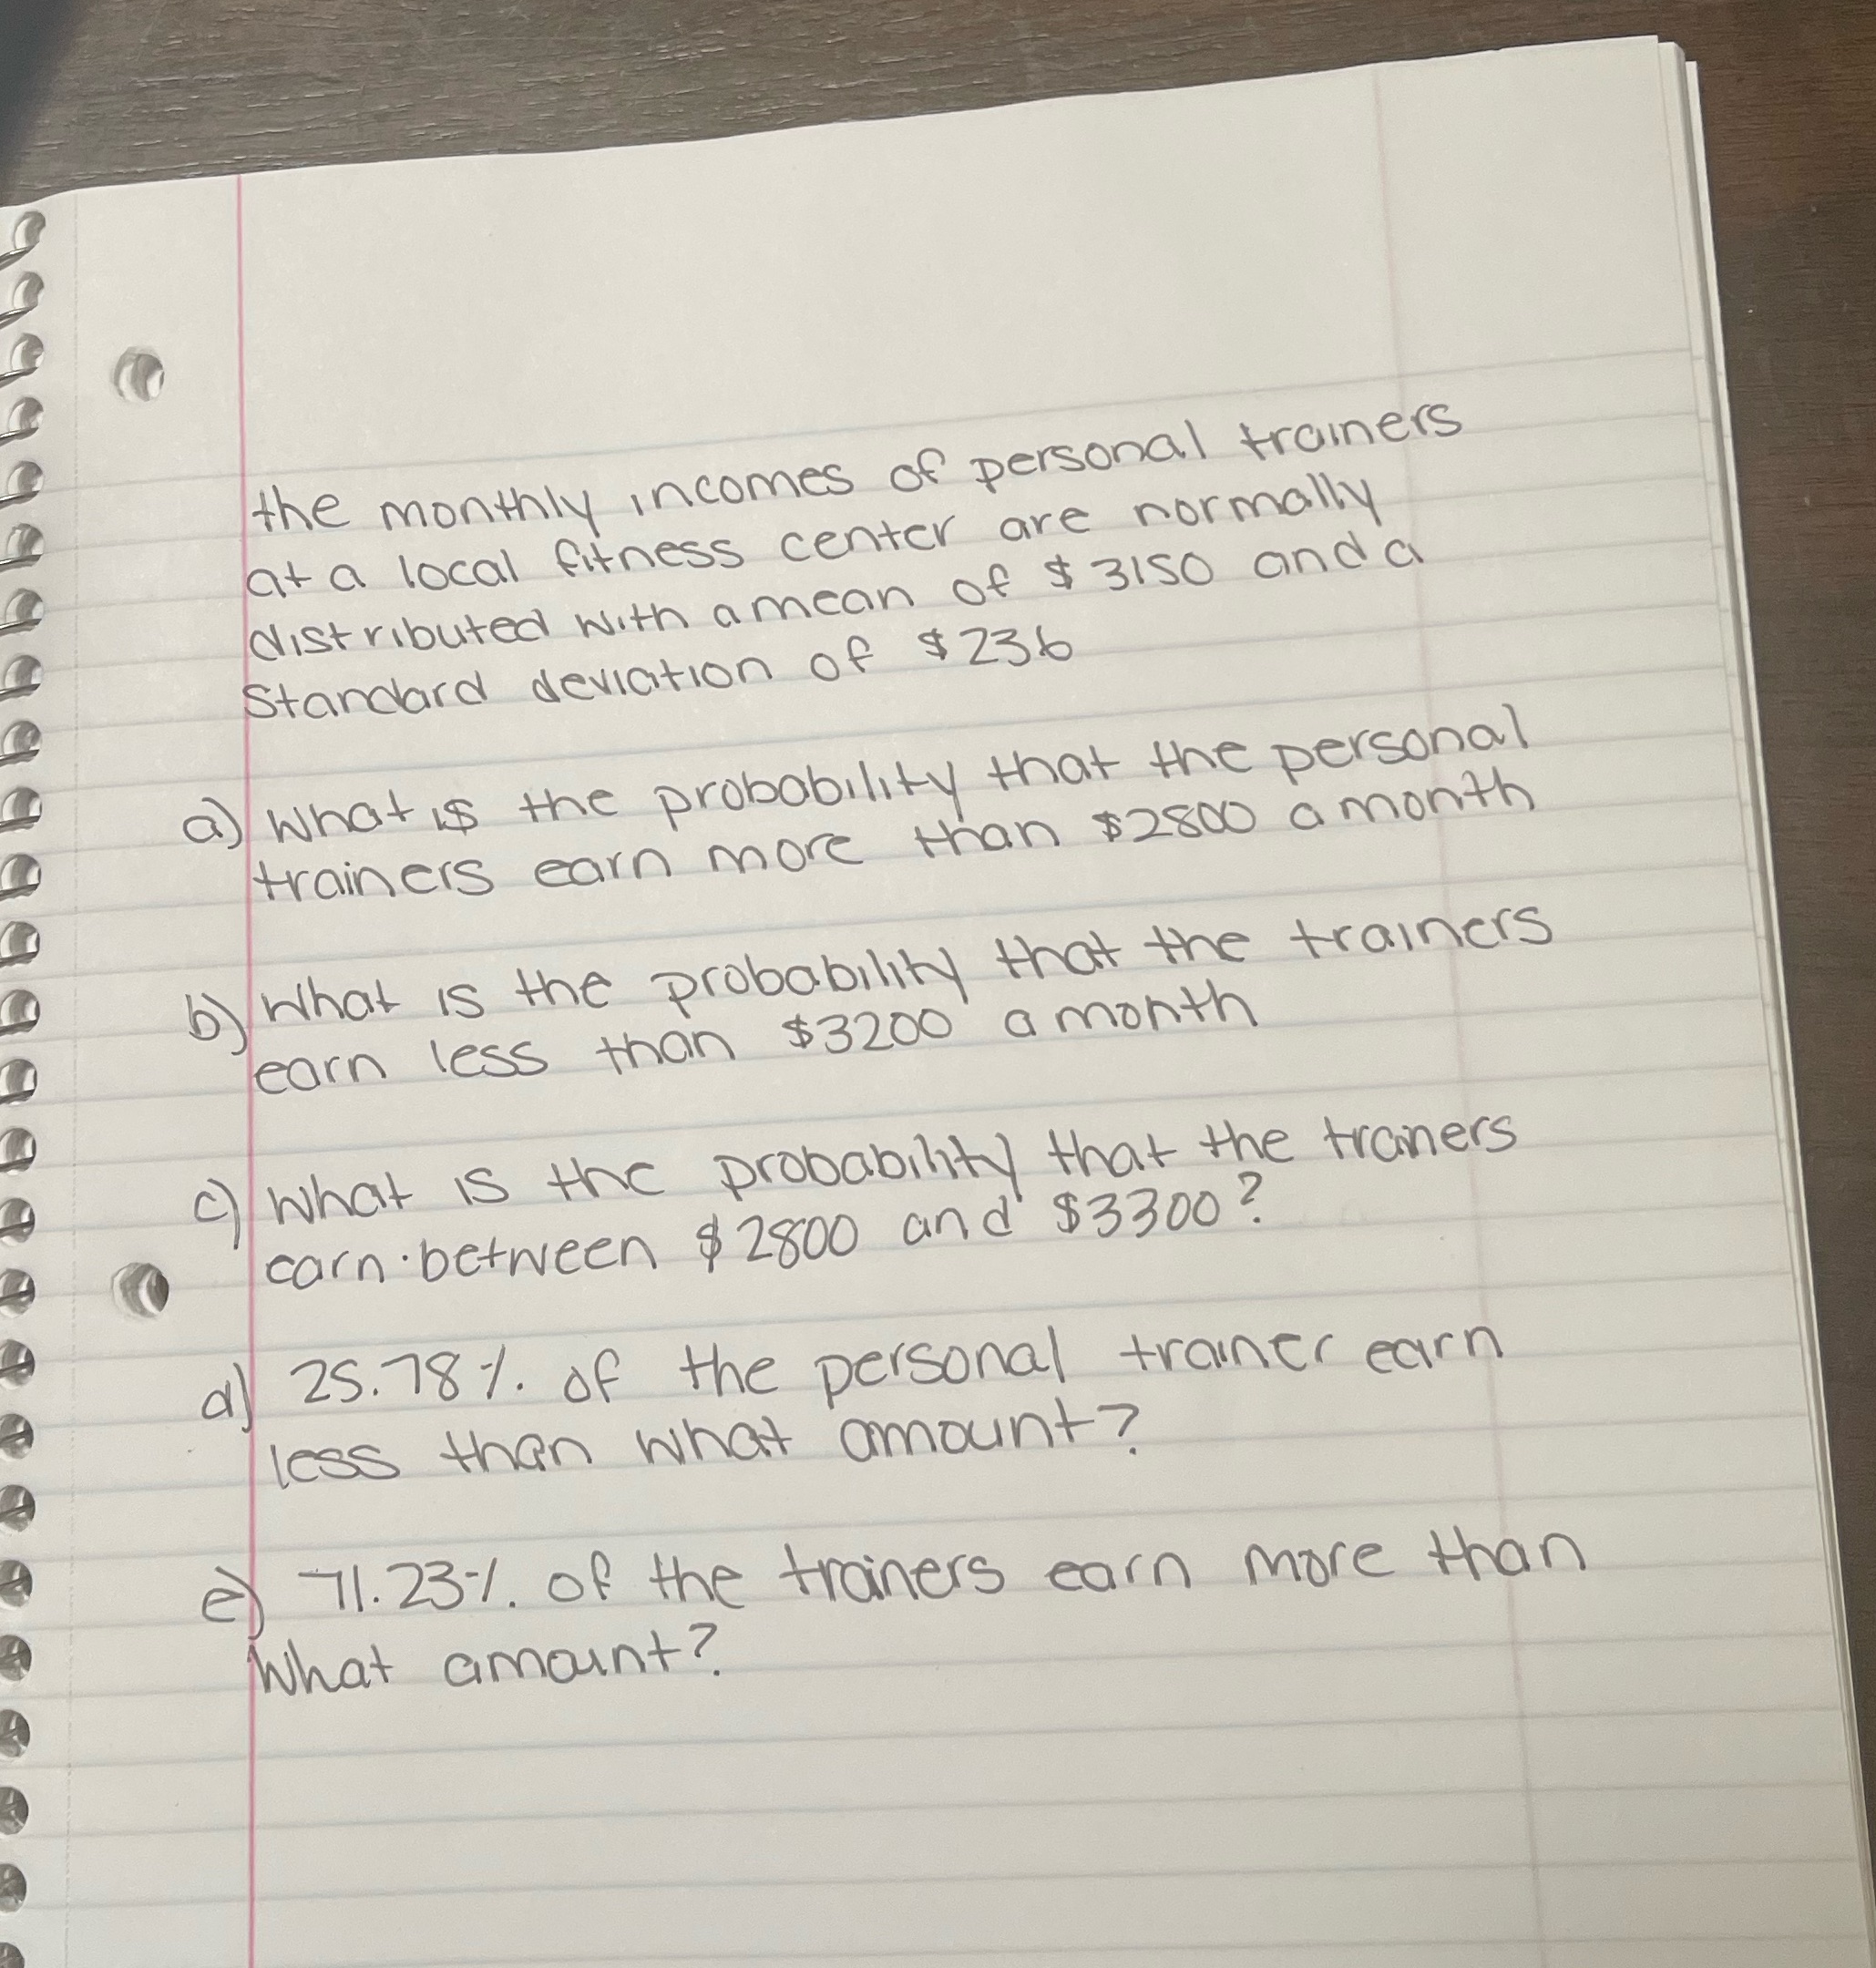 the monthly incomes of personal trainers
at a local fitness center are normally
distributed with a mean of $3150 and a
Standard deviation of $236
a) What is the probability that the personal
trainers earn more than $2800 a month
b) What is the probability that the trainers
earn less than $3200 a month
c) What is the probability that the trainers
earn between $2800 and $3300?
d) 25.78% of the personal trainer earn
less than what amount?
e) 71.23% of the trainers earn more than
What amount?